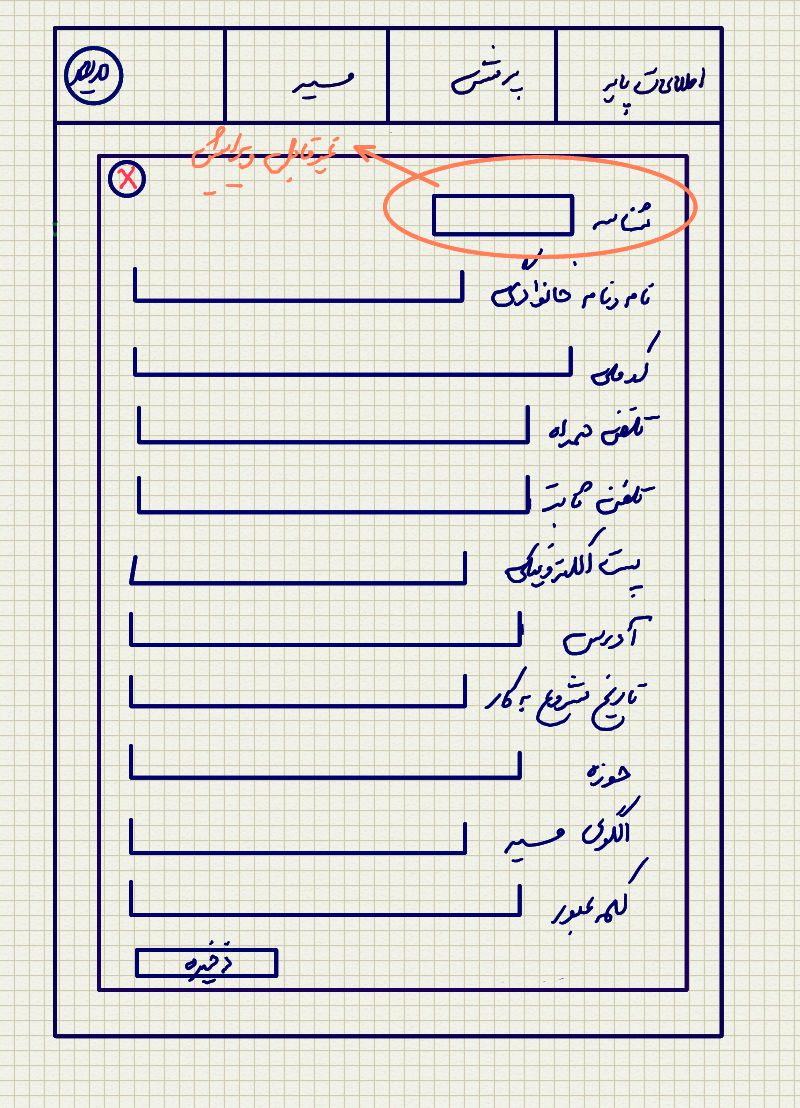 اطلاعات پایه
پرسش
مسیر
مدیر
غیرقابل ویرایش
X
شناسه
نام و نام خانوادگی
کد ملی
تلفن همراه
تلفن ثابت
پست الکترونیکی
آدرس
تاریخ شروع به کار
حوزه
الگوی مسیر
کلمه عبور
ذخیره